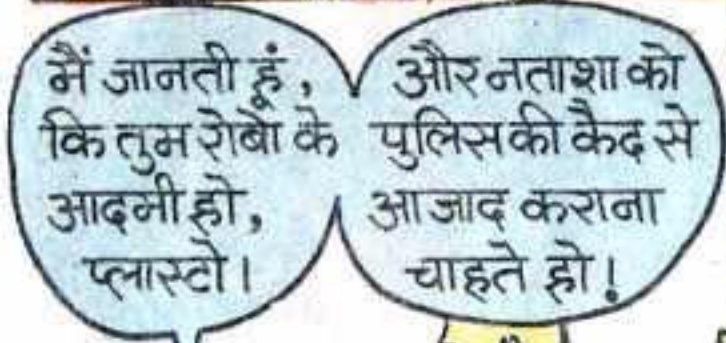 मैं जानती हूं,
कि तुम रोबो के
आदमी हो,
प्लास्टो।
और नताशा को
पुलिस की कैद से
आजाद कराना
चाहते हो!